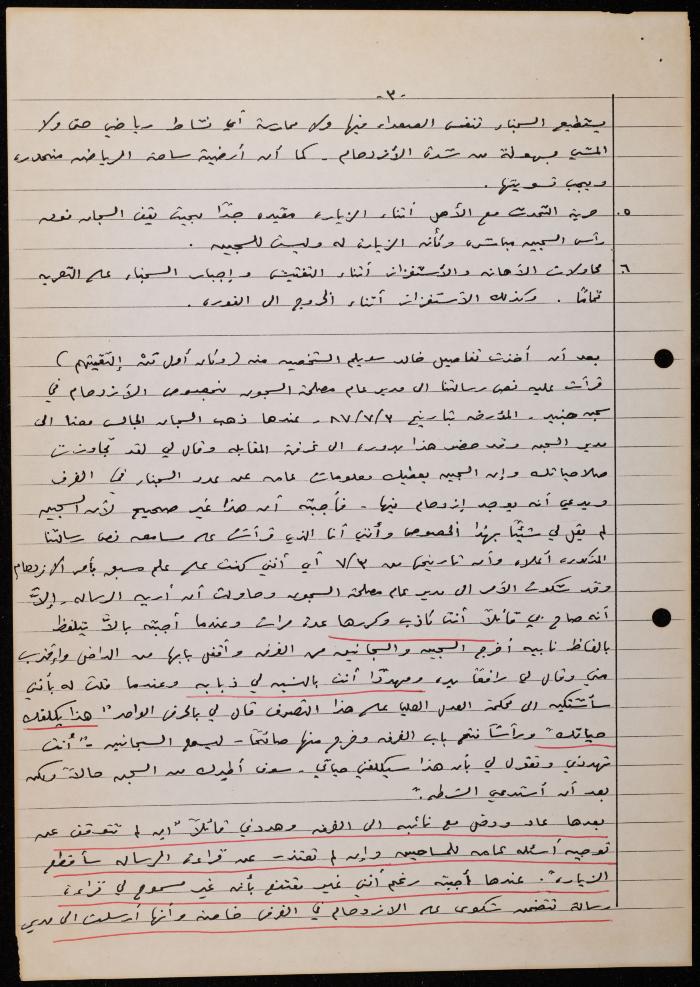 -٣-
يستطيع السجناء تنفس الصعداء فيها ولا ممارسة أي نشاط رياضي حتى ولا
المشي بسهولة من شدة الأزدحام - كما أن أرضية ساحة الرياضه منحدره
ويجب تسويتها .
٥. حرية التحدث مع الأهل أثناء الزياره مقيده جدًا بحيث يقف السجان فوق
رأس السجين مباشره وكأن الزياره له وليست للسجين .
٦. محاولات الأهانه والأستفزاز أثناء التفتيش وإجبار السجناء على التعريه
تمامًا . وكذلك الأستفزاز أثناء الخروج الى الفوره .
بعد أن أخذت تفاصيل خالد سويلم الشخصيه منه (وكان أول من إلتقيتهم)
قرأت عليه نص رسالتنا الى مدير عام مصلحة السجون بخصوص الأزدحام في
سجن جنيد - المؤرخه بتاريخ ٨٧/٧/٣ - عندها ذهب السجان الجالس معنا الى
مدير السجن وقد حضر هذا بدوره الى غرفة المقابله وقال لي لقد تجاوزت
صلاحياتك وإن السجين يعطيك معلومات عامه عن عدد السجناء في الغرف
ويدعي أنه يوجد إزدحام فيها - فأجبته أن هذا غير صحيح لأن السجين
لم يقل لي شيئًا بهذا الخصوص وأنني أنا الذي قرأت على مسامعه نص رسالتنا
المذكوره أعلاه وأن تاريخها من ٧/٣ أي أنني كنت على علم مسبق بأمر الازدحام
وقد شكوت الأمر الى مدير عام مصلحة السجون وحاولت أن أريه الرساله - إلاّ
أنه صاح بي قائلاً أنت كاذب وكررها عدة مرات وعندما أجبته بالاّ يتلفظ
بالفاظ نابيه أخرج السجين والسجانين من الغرفه وأقفل بابها من الداخل وإقترب
مني وقال لي رافعًا يده ومهددًا أنت بالنسبه لي ذبابه وعندما قلت له بأنني
سأشتكيه الى محكمة العدل العليا على هذا التصرف قال لي بالحرف الواحد "هذا يكلفك
حياتك" ورأسًا فتح باب الغرفه وخرج منها صائحًا - ليسمع السجانين - "أنت
تهددني وتقول لي بأن هذا سيكلفني حياتي - سوف أطردك من السجن حالاً ولكن
بعد أن أستدعي الشرطه ."
بعدها عاد ودخل مع نائبه الى الغرفه وهددني قائلاً "إن لم تتوقف عن
توجيه أسئله عامه للمساجين وإن لم تمتنع عن قراءة الرساله سأقطع
الزياره". عندها أجبته رغم أنني غير مقتنع بأنه غير مسموح لي قراءة
رسالة تتضمن شكوى على الازدحام في الغرف خاصه وأنها أرسلت الى مدير